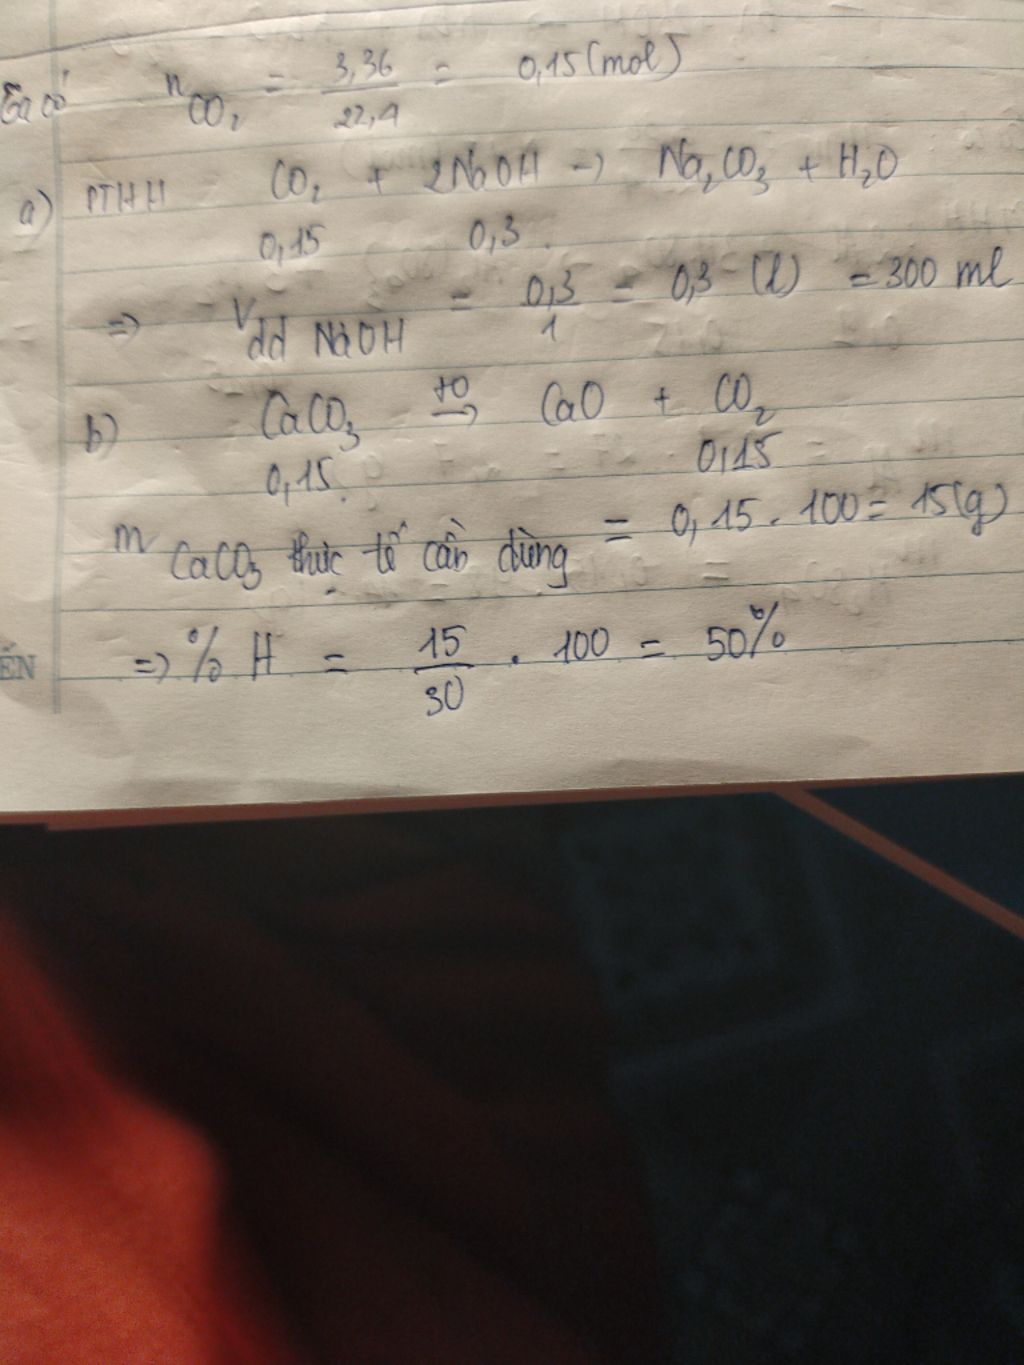 Ta có n CO₂ = 3,36 / 22,4 = 0,15 (mol)
a) PTHH CO₂ + 2NaOH → Na₂CO₃ + H₂O
0,15 0,3
=> V dd NaOH = 0,3 / 1 = 0,3 (l) = 300 ml
b) CaCO₃ t0→ CaO + CO₂
0,15 0,15
m CaCO₃ thực tế cần dùng = 0,15 . 100 = 15(g)
=> % H = 15 / 30 . 100 = 50%
ẾN